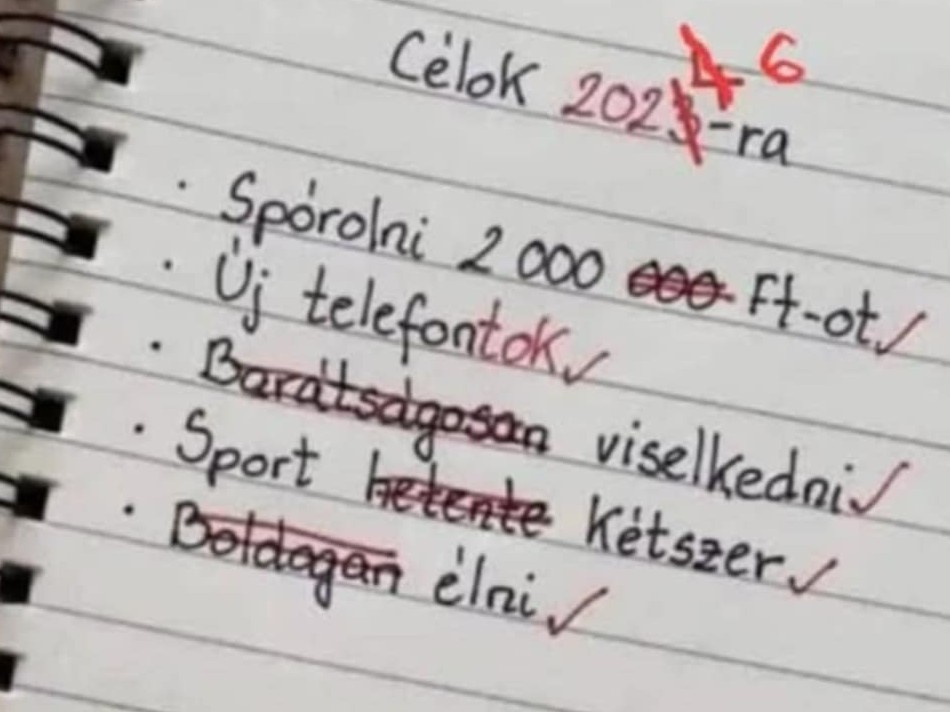 Célok 2023 4 6-ra
· Spórolni 2 000 000 Ft-ot ✓
· Új telefontok ✓
· Barátságosan viselkedni ✓
· Sport hetente kétszer ✓
· Boldogan élni ✓